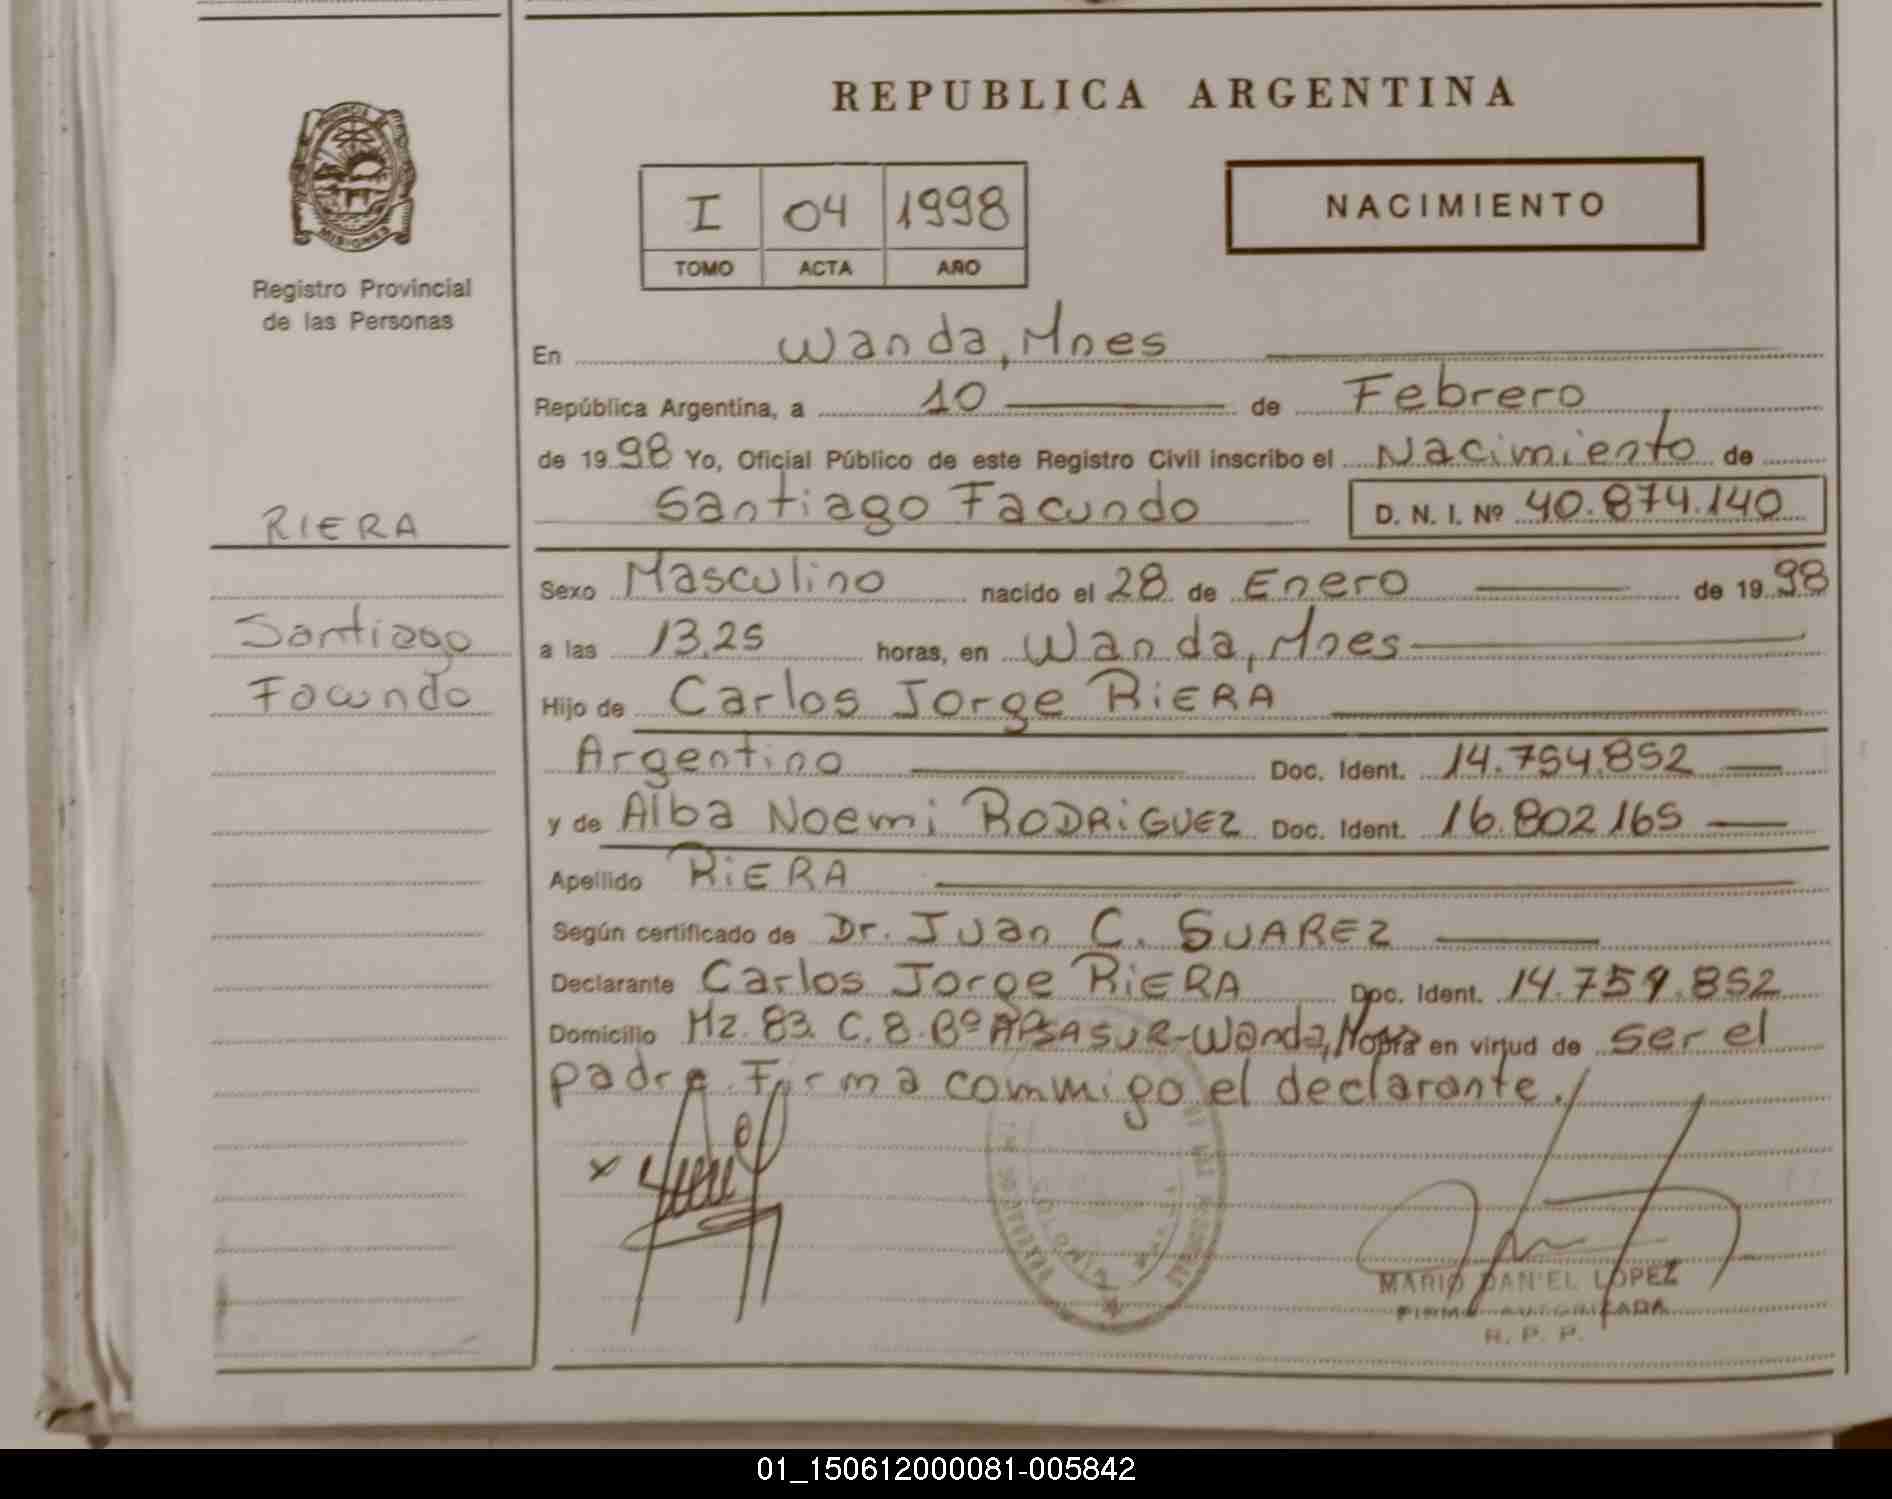 REPUBLICA ARGENTINA
PROVINCIA DE
MISIONES
Registro Provincial
de las Personas
I 04 1998
TOMO ACTA AÑO
NACIMIENTO
En Wanda, Mnes
República Argentina, a 10 de Febrero
de 1998 Yo, Oficial Público de este Registro Civil inscribo el Nacimiento de
Santiago Facundo D. N. I. Nº 40.874.140
RIERA
Santiago
Facundo
Sexo Masculino nacido el 28 de Enero de 1998
a las 13,25 horas, en Wanda, Mnes
Hijo de Carlos Jorge RiERA
Argentino Doc. Ident. 14.754.852
y de Alba Noemi RODRiGUEZ Doc. Ident. 16.802165
Apellido RiERA
Según certificado de Dr. Juan C. SUAREZ
Declarante Carlos Jorge RiERA Doc. Ident. 14.754.852
Domicilio Mz. 83. C. 8. Bº APSA SUR-Wanda, en virtud de ser el
padre. Firma commigo el declarante.
x
MARIO DANIEL LOPEZ
FIRMA AUTORIZADA
R. P. P.
01_150612000081-005842